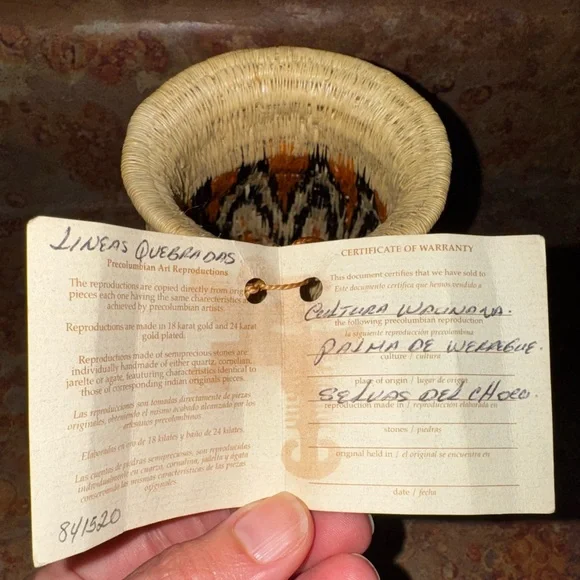 LINEAS QUEBRADAS
Precolumbian Art Reproductions
The reproductions are copied directly from
pieces each one having the same charecteristics
achieved by precolumbian artists.
Reproductions are made in 18 karat and 24 karat
gold plated.
Reproductions made of semiprecious stones are
individually handmade of either quartz, cornelian,
jarelte of agate, featuring characteristics identical to
those of corresponding indian originals pieces.
Las reproducciones son tomadas directamente de piezas
originales, obteniendo el mismo acabado alcanzado por los
artesanos precolombinos.
Elaboradas en oro de 18 kilates y baño de 24 kilates.
Las cuentas de piedras semipreciosas, son reproducidas
individualmente en cuarzo, cornalina, jadeita y agata
conservando las mismas características de las piezas
originales.
841520
CERTIFICATE OF WARRANTY
This document certifies that we have sold to
Este documento certifica que hemos vendido a
CULTURA WAUNANA.
the following precolumbian reproduction
la siguiente reproducción precolombina
PALMA DE WERREGUE.
culture / cultura
place of origin / lugar de origen
SELVAS DEL CHOCO.
reproduction made in / reproducción elaborada en
stones / piedras
original held in / el original se encuentra en
date / fecha